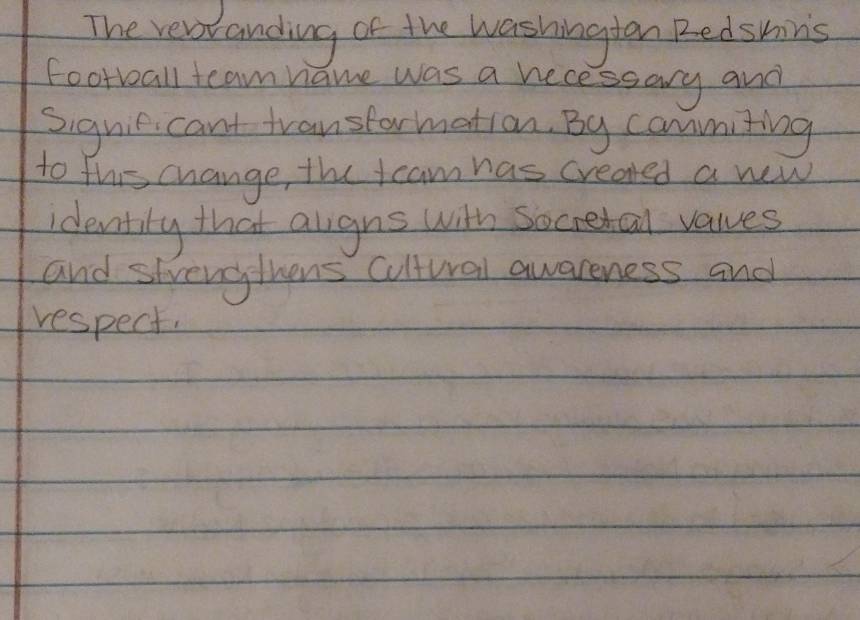 The rebranding of the Washington Redskin's
football team name was a necessary and
significant transformation. By commiting
to this change, the team has created a new
identity that aligns with societal values
and strengthens cultural awareness and
respect.